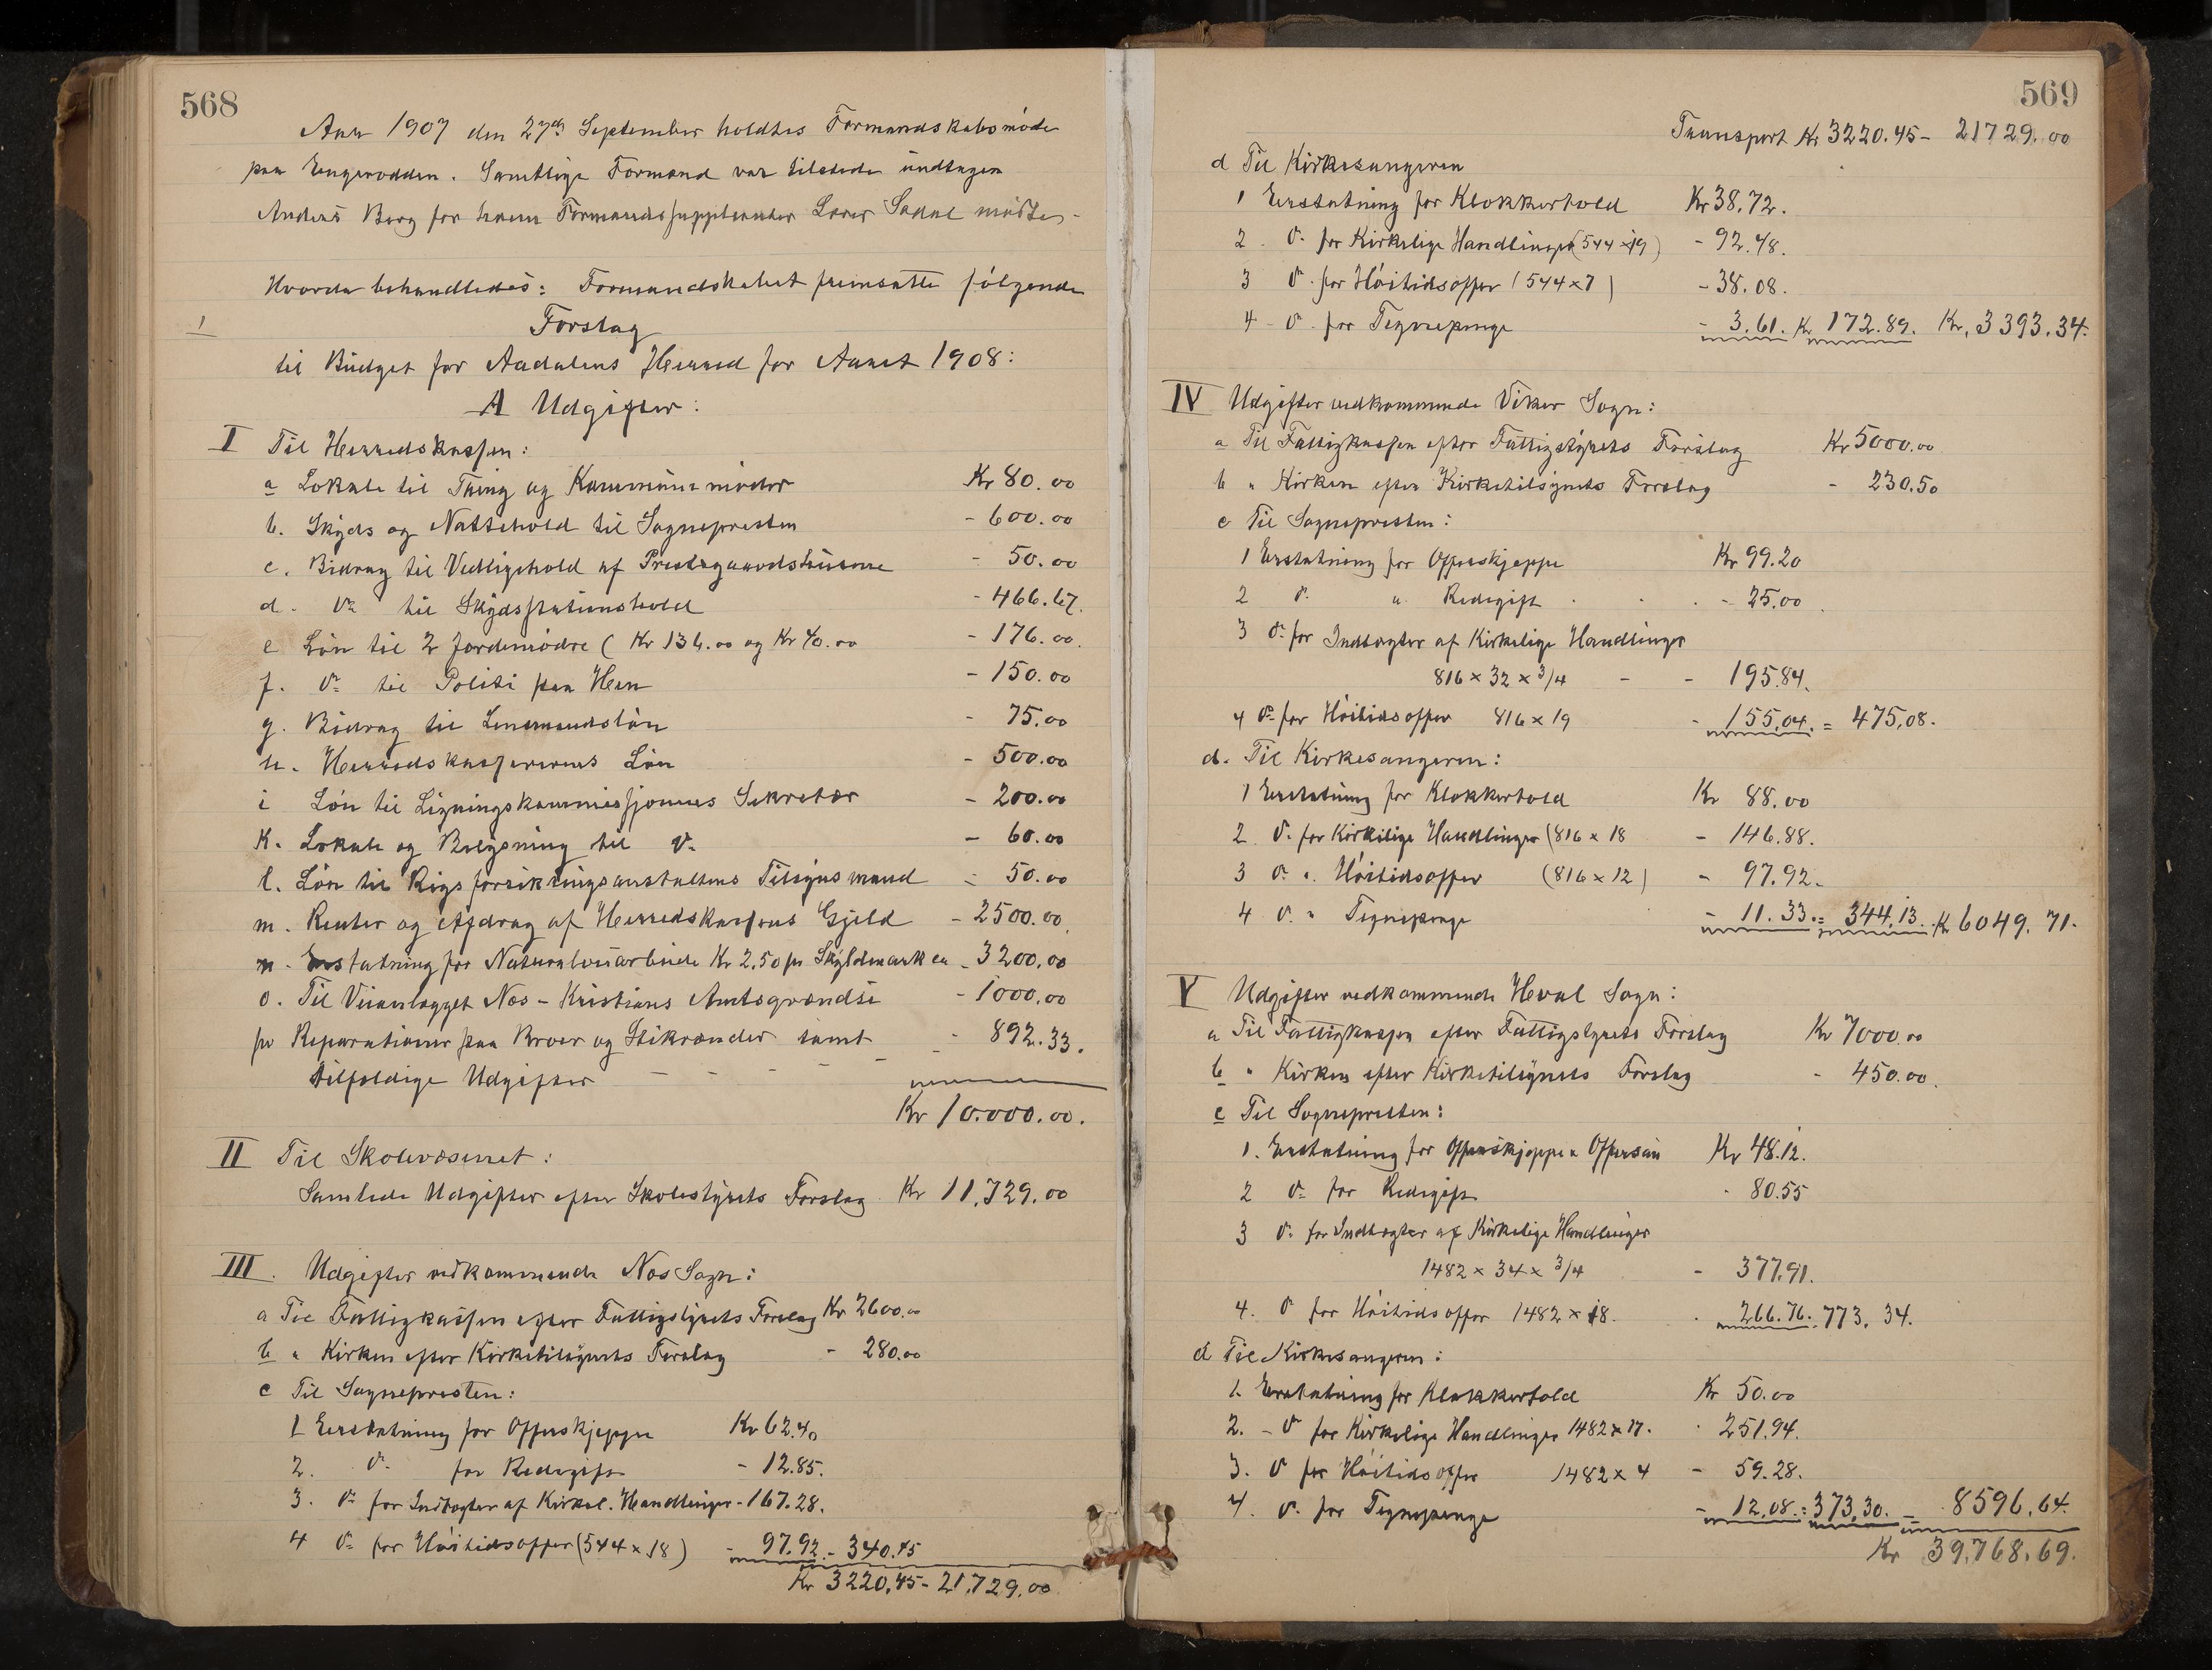 568
Aar 1907 den 27de September holdtes Formandskabsmöde
paa Engerodden. Samtlige Formænd var tilstede undtagen
Anders Berg for hvem Formandssuppleanten Lars Sadal mödte.
Hvorda behandledes: Formandskabet fremsatte fölgende
1
Forslag
til Budget for Aadalens Herred for Aaret 1908:
A Udgifter:
I Til Herredskassen:
a Lokale til Thing og Kommunemöder Kr 80.00
b. Skyds og Nattehold til Sognepresten - 600.00
c. Bidrag til Vedligehold af Prestegaardshusene - 50.00
d. do til Skydsstationshold - 466.67.
e Lön til 2 Jordemödre ( Kr 136.00 og Kr 40.00 - 176.00.
f. do til Politi paa Hen - 150.00
g. Bidrag til Lensmandslön - 75.00
h. Herredskassererens Lön - 500.00
i Lön til Ligningskommissjonens Sekretær - 200.00
k. Lokale og Belysning til do - 60.00
l. Lön til Rigsforsikringsanstaltens Tilsynsmand - 50.00
m. Renter og Afdrag af Herredskassens Gjeld - 2500.00.
n. Erstatning for Naturalveiarbeide Kr 2.50 pr Skyldmark ca - 3200.00
o. Til Veianlægget Næs - Kristians Amtsgrændse - 1000.00
p. Reparationer paa Broer og Stikrænder samt - 892.33.
tilfældige Udgifter - - - - -
Kr 10.000.00.
II Til Skolevæsenet:
Samlede Udgifter efter Skolestyrets Forslag Kr 11,729.00
III. Udgifter vedkommende Næs Sogn:
a Til Fattigkassen efter Fattigstyrets Forslag Kr 2600.00
b " Kirken efter Kirketilsynets Forslag - 280.00
c Til Sognepresten:
1 Erstatning for Offerskjeppe Kr 62.40
2. do for Redegift - 12.85.
3. do for Indtægter af Kirkel. Handlinger - 167.28.
4 do for Höitidsoffer (544 x 18) - 97.92. - 340.45
Kr 3220.45 - 21.729.00
569
Transport Kr 3220.45 - 21729.00
d Til Kirkesangeren
1 Erstatning for Klokkertold Kr 38,72.
2. do for Kirkelige Handlinger (544 x 19) - 92.48.
3 do for Höitidsoffer (544 x 7) - 38.08.
4 - do for Tegnepenge - 3.61. Kr 172.89. Kr. 3393.34.
IV Udgifter vedkommende Viker Sogn:
a Til Fattigkassen efter Fattigstyrets Forslag Kr 5000.00
b " Kirken efter Kirketilsynets Forslag - 230.50
c Til Sognepresten:
1 Erstatning for Offerskjeppe Kr 99.20
2 do " Redegift - 25.00.
3 do for Indtægter af Kirkelige Handlinger
816 x 32 x 3/4 - - 195.84.
4 do for Höitidsoffer 816 x 19 - 155.04. = 475.08.
d. Til Kirkesangeren:
1 Erstatning for Klokkertold Kr 88.00
2 do for Kirkelige Handlinger (816 x 18 - 146.88.
3 do " Höitidsoffer (816 x 12) - 97.92.
4 do " Tegnepenge - 11.33. = 344.13. Kr 6049.71.
V Udgifter vedkommende Heval Sogn:
a Til Fattigkassen efter Fattigstyrets Forslag Kr 7000.00
b " Kirken efter Kirketilsynets Forslag - 450.00.
c Til Sognepresten:
1. Erstatning for Offerskjeppe Kr 48.12.
2 do for Redegift - 80.55
3 do for Indtægter af Kirkelige Handlinger
1482 x 34 x 3/4 - 377.91.
4. do for Höitidsoffer 1482 x 18. - 266.76. 773.34.
d Til Kirkesangeren:
1. Erstatning for Klokkertold Kr 50.00
2. - do for Kirkelige Handlinger 1482 x 17. - 251.94.
3. do for Höitidsoffer 1482 x 4 - 59.28.
4. do for Tegnepenge - 12.08. = 373.30. = 8596.64.
Kr 39,768.69.